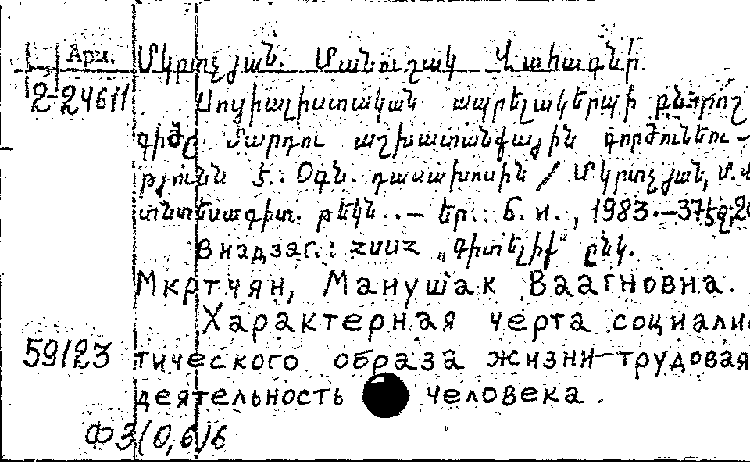 Арм. Մկրտչյան. Մանուշակ Վահագնի.
2-24611 Սոցիալիստական ապրելակերպի բնորոշ
գիծը մարդու աշխատանքային գործունեու-
թյունն է.: Օգն. դասախոսին / Մկրտչյան, Մ.Վ
տնտեսագիտ. թեկն..— Եր.: Б. и., 1983.—37էջ, 20
Внадзаг.: ՀՍՍՀ „Գիտելիք“ ընկ.
Мкртчян, Манушак Ваагновна.
Характерная черта социалис
59123 тического образа жизни-трудовая
деятельность человека.
Ф3(0,6)6